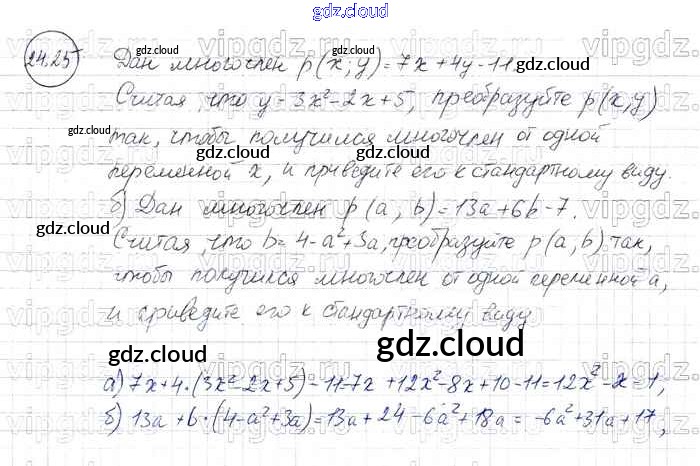 gdz.cloud
24.25 Дан многочлен p(x; y) = 7x + 4y - 11.
Считая, что y - 3x² - 2x + 5, преобразуйте p(x; y)
так, чтобы получился многочлен от одной
переменной x, и приведите его к стандартному виду.
б) Дан многочлен p(a; b) = 13a + 6b - 7.
Считая, что b = 4 - a² + 3a, преобразуйте p(a, b) так,
чтобы получился многочлен от одной переменной a,
и приведите его к стандартному виду
gdz.cloud
а) 7x + 4·(3x² - 2x + 5) - 11 = 7x + 12x² - 8x + 10 - 11 = 12x² - x = 1,
б) 13a + 6·(4 - a² + 3a) = 13a + 24 - 6a² + 18a = -6a² + 31a + 17,